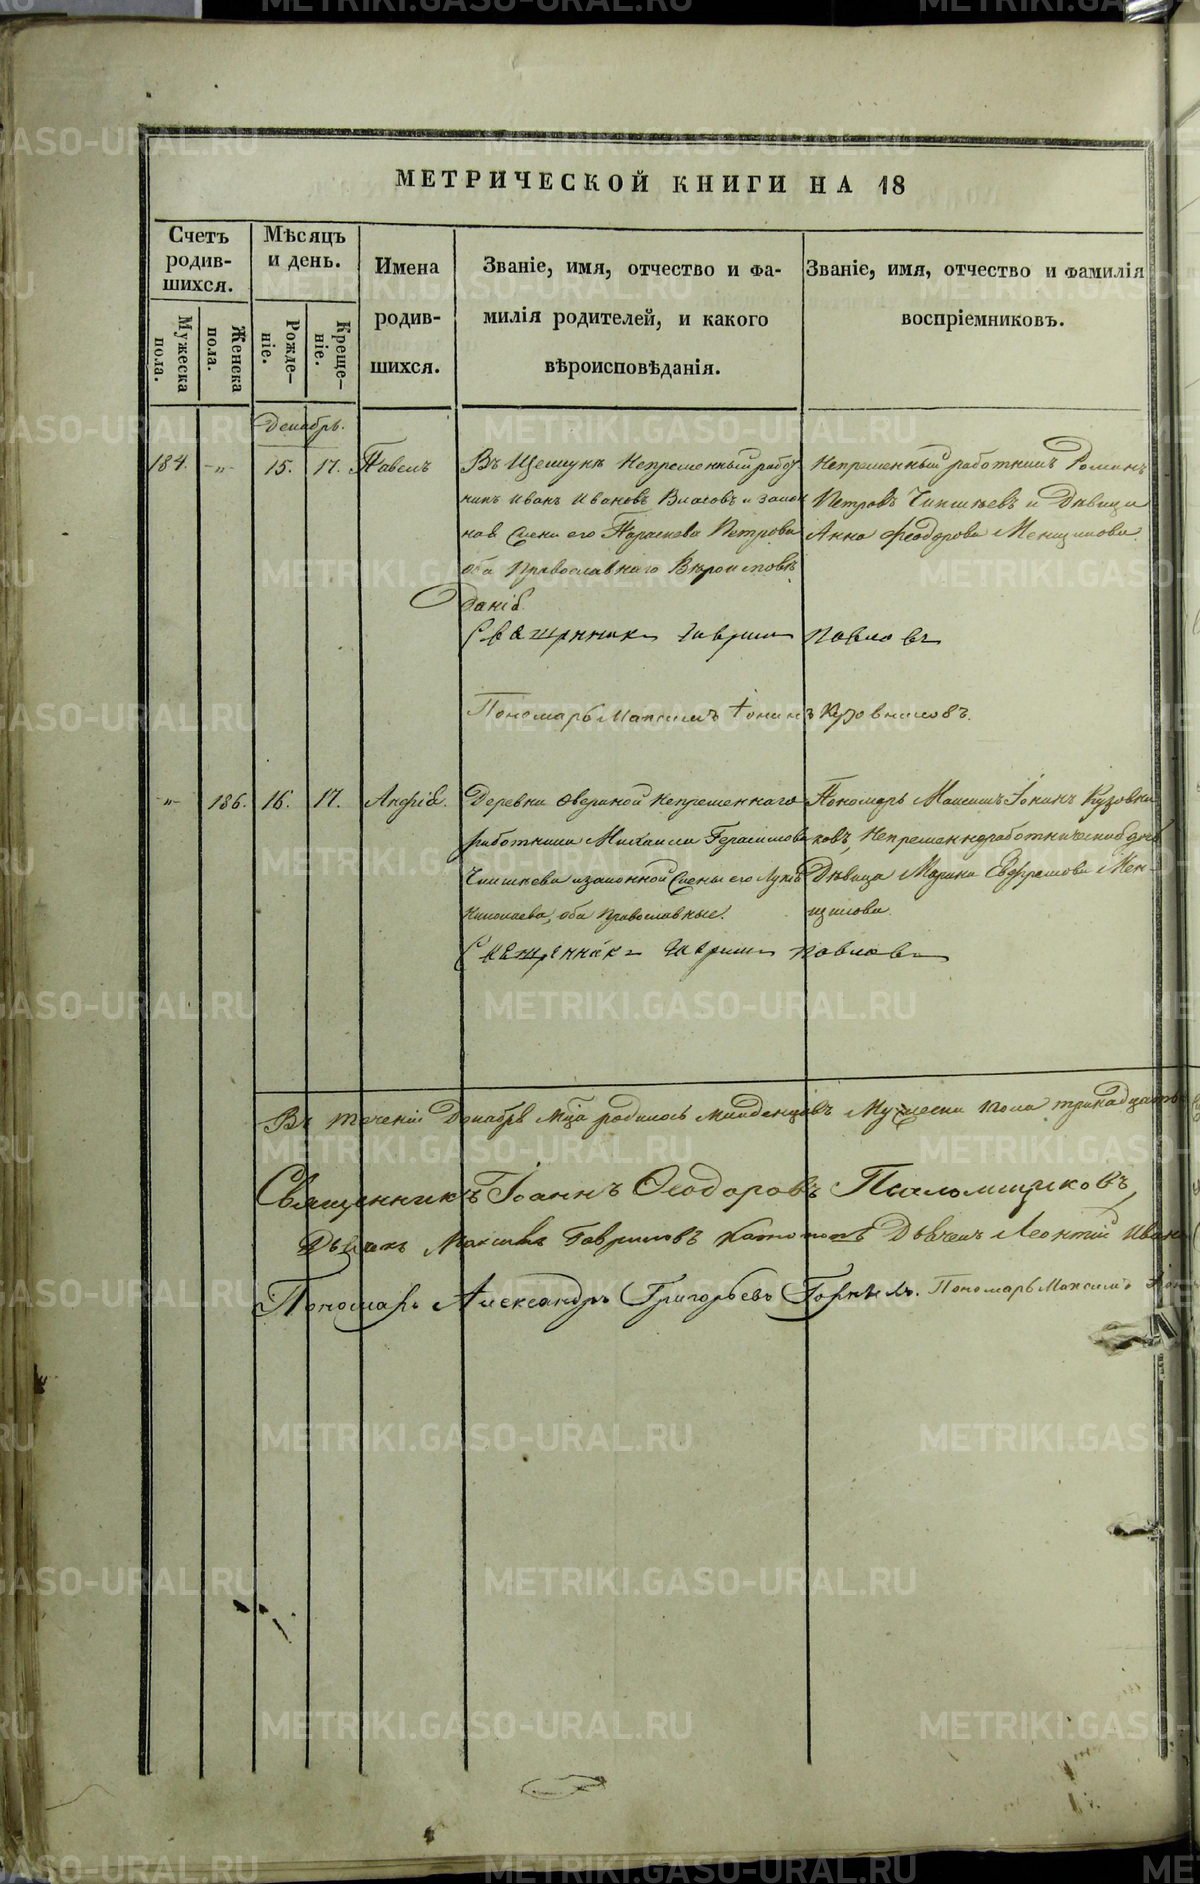 МЕТРИЧЕСКОЙ КНИГИ НА 18
Счетъ родив-шихся.
Мужеска пола.
Женска пола.
Мѣсяцъ и день.
Рожде-ніе.
Креще-ніе.
Имена
родив-
шихся.
Званіе, имя, отчество и фа-
милія родителей, и какого
вѣроисповѣданія.
Званіе, имя, отчество и фамилія
воспріемниковъ.
Декабрь.
184. -„- 15. 17. Павелъ
Непременный работ
никъ Иванъ Ивановъ Власовъ и закон
ная жена его Параскева Петрова
оба Православнаго Вѣроисповѣ
данія.
Непременный работникъ Романъ
Петровъ и Дѣвица
Анна Феодорова Менщикова.
Священникъ Гаврiилъ Павловъ
Пономарь Максимъ Іонинъ Кузовниковъ.
-„- 186. 16. 17. Анфія.
Деревни Авериной Непременнаго
работника Михаила Герасимова
и законной жены его
Николаева, оба Православные.
Пономарь Максимъ Іонинъ Кузовни
ковъ, Непременноработническая дочь
Дѣвица Марина Евфремова Мен-
щикова.
Священникъ Гаврiилъ Павловъ
Въ теченіи Декабря мца родилось младенцовъ Мужеска пола тринадцать
Священникъ Іоаннъ Ѳеодоровъ Паломщиковъ,
Дьяконъ Максимъ Гавриловъ Дьячекъ Леонтій Иван
Пономарь Александръ Григорьевъ Пономарь Максимъ
METRIKI.GASO-URAL.RU